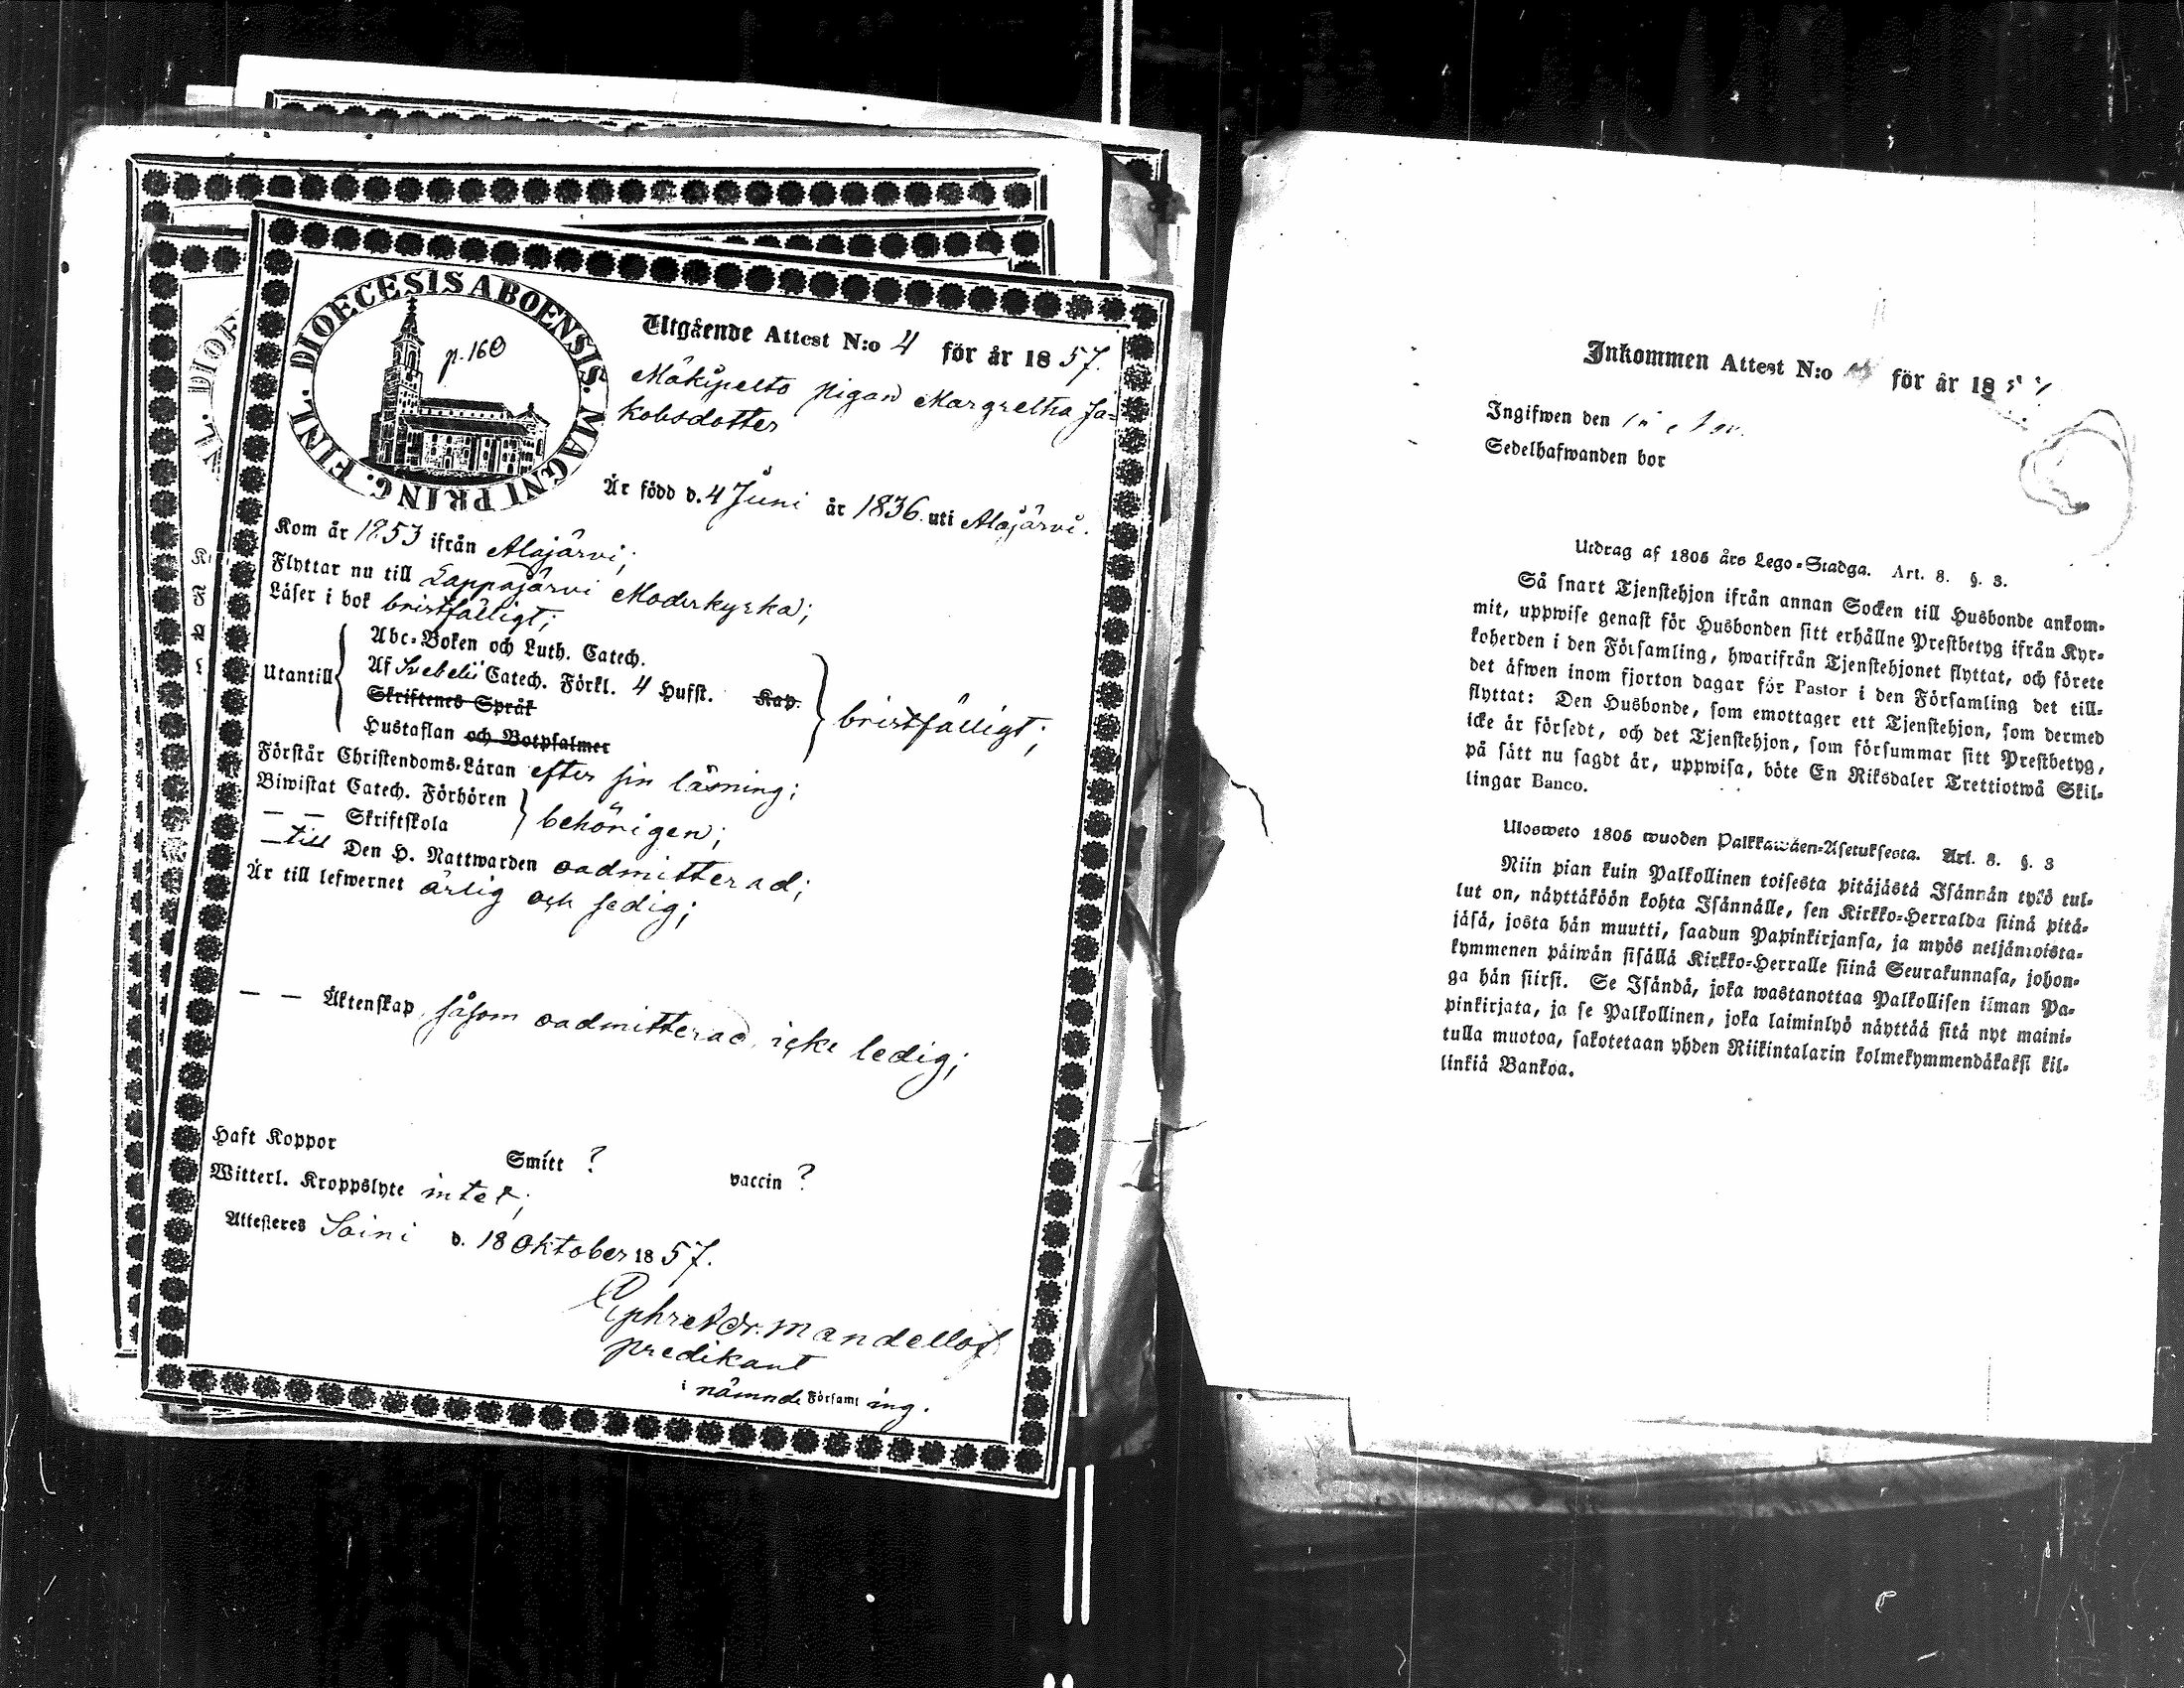 FINL. DIOECESIS ABOENSIS. MAGNI PRINC.
p. 160
Utgående Attest N:o 4 för år 1857.
Mäkipelto pigan Margretha Ja=
kobsdotter
Är född d. 4 Juni år 1836. uti Alajärvi.
Kom år 1853 ifrån Alajärvi;
Flyttar nu till Lappajärvi Moderkyrka;
Läser i bok bristfälligt;
Utantill
Abc-Boken och Luth. Catech.
Af Svebelii Catech. Förkl. 4 Hufst. Kap.
Skriftenes Språk
Hustaflan och Botpsalmer
bristfälligt;
Förstår Christendoms-Läran efter sin läsning;
Biwistat Catech. Förhören
— — Skriftskola
behörigen;
— till Den H. Nattwarden oadmitterad;
Är till lefwernet ärlig och sedig;
— — Äktenskap såsom oadmitterad icke ledig;
Haft Koppor Smitt ? vaccin ?
Witterl. Kroppslyte intet;
Attesteres Soini d. 18 Oktober 1857.
Mandellöf
predikant
i nämnde Församling.
Inkommen Attest N:o för år 1857
Ingifwen den
Sedelhafwanden bor
Utdrag af 1805 års Lego-Stadga. Art. 8. §. 3.
Så snart Tjenstehjon ifrån annan Socken till Husbonde ankom-
mit, uppwise genast för Husbonden sitt erhållne Prestbetyg ifrån Kyr-
koherden i den Församling, hwarifrån Tjenstehjonet flyttat, och förete
det äfwen inom fjorton dagar för Pastor i den Församling det till-
flyttat: Den Husbonde, som emottager ett Tjenstehjon, som dermed
icke är försedt, och det Tjenstehjon, som försummar sitt Prestbetyg,
på sätt nu sagdt är, uppwisa, böte En Riksdaler Trettiotwå Skil-
lingar Banco.
Ulosweto 1805 wuoden Palkkawäen-Asetuksesta. Art. 8. §. 3
Niin pian kuin Palkollinen toisesta pitäjästä Isännän tykö tul-
lut on, näyttäköön kohta Isännälle, sen Kirkko-Herralda siinä pitä-
jäsä, josta hän muutti, saadun Papinkirjansa, ja myös neljäntoista-
kymmenen päiwän sisällä Kirkko-Herralle siinä Seurakunnasa, johon-
ga hän siirsi. Se Isändä, joka wastanottaa Palkollisen ilman Pa-
pinkirjata, ja se Palkollinen, joka laiminlyö näyttää sitä nyt maini-
tulla muotoa, sakotetaan yhden Riikintalarin kolmekymmendäkaksi kil-
linkiä Bankoa.